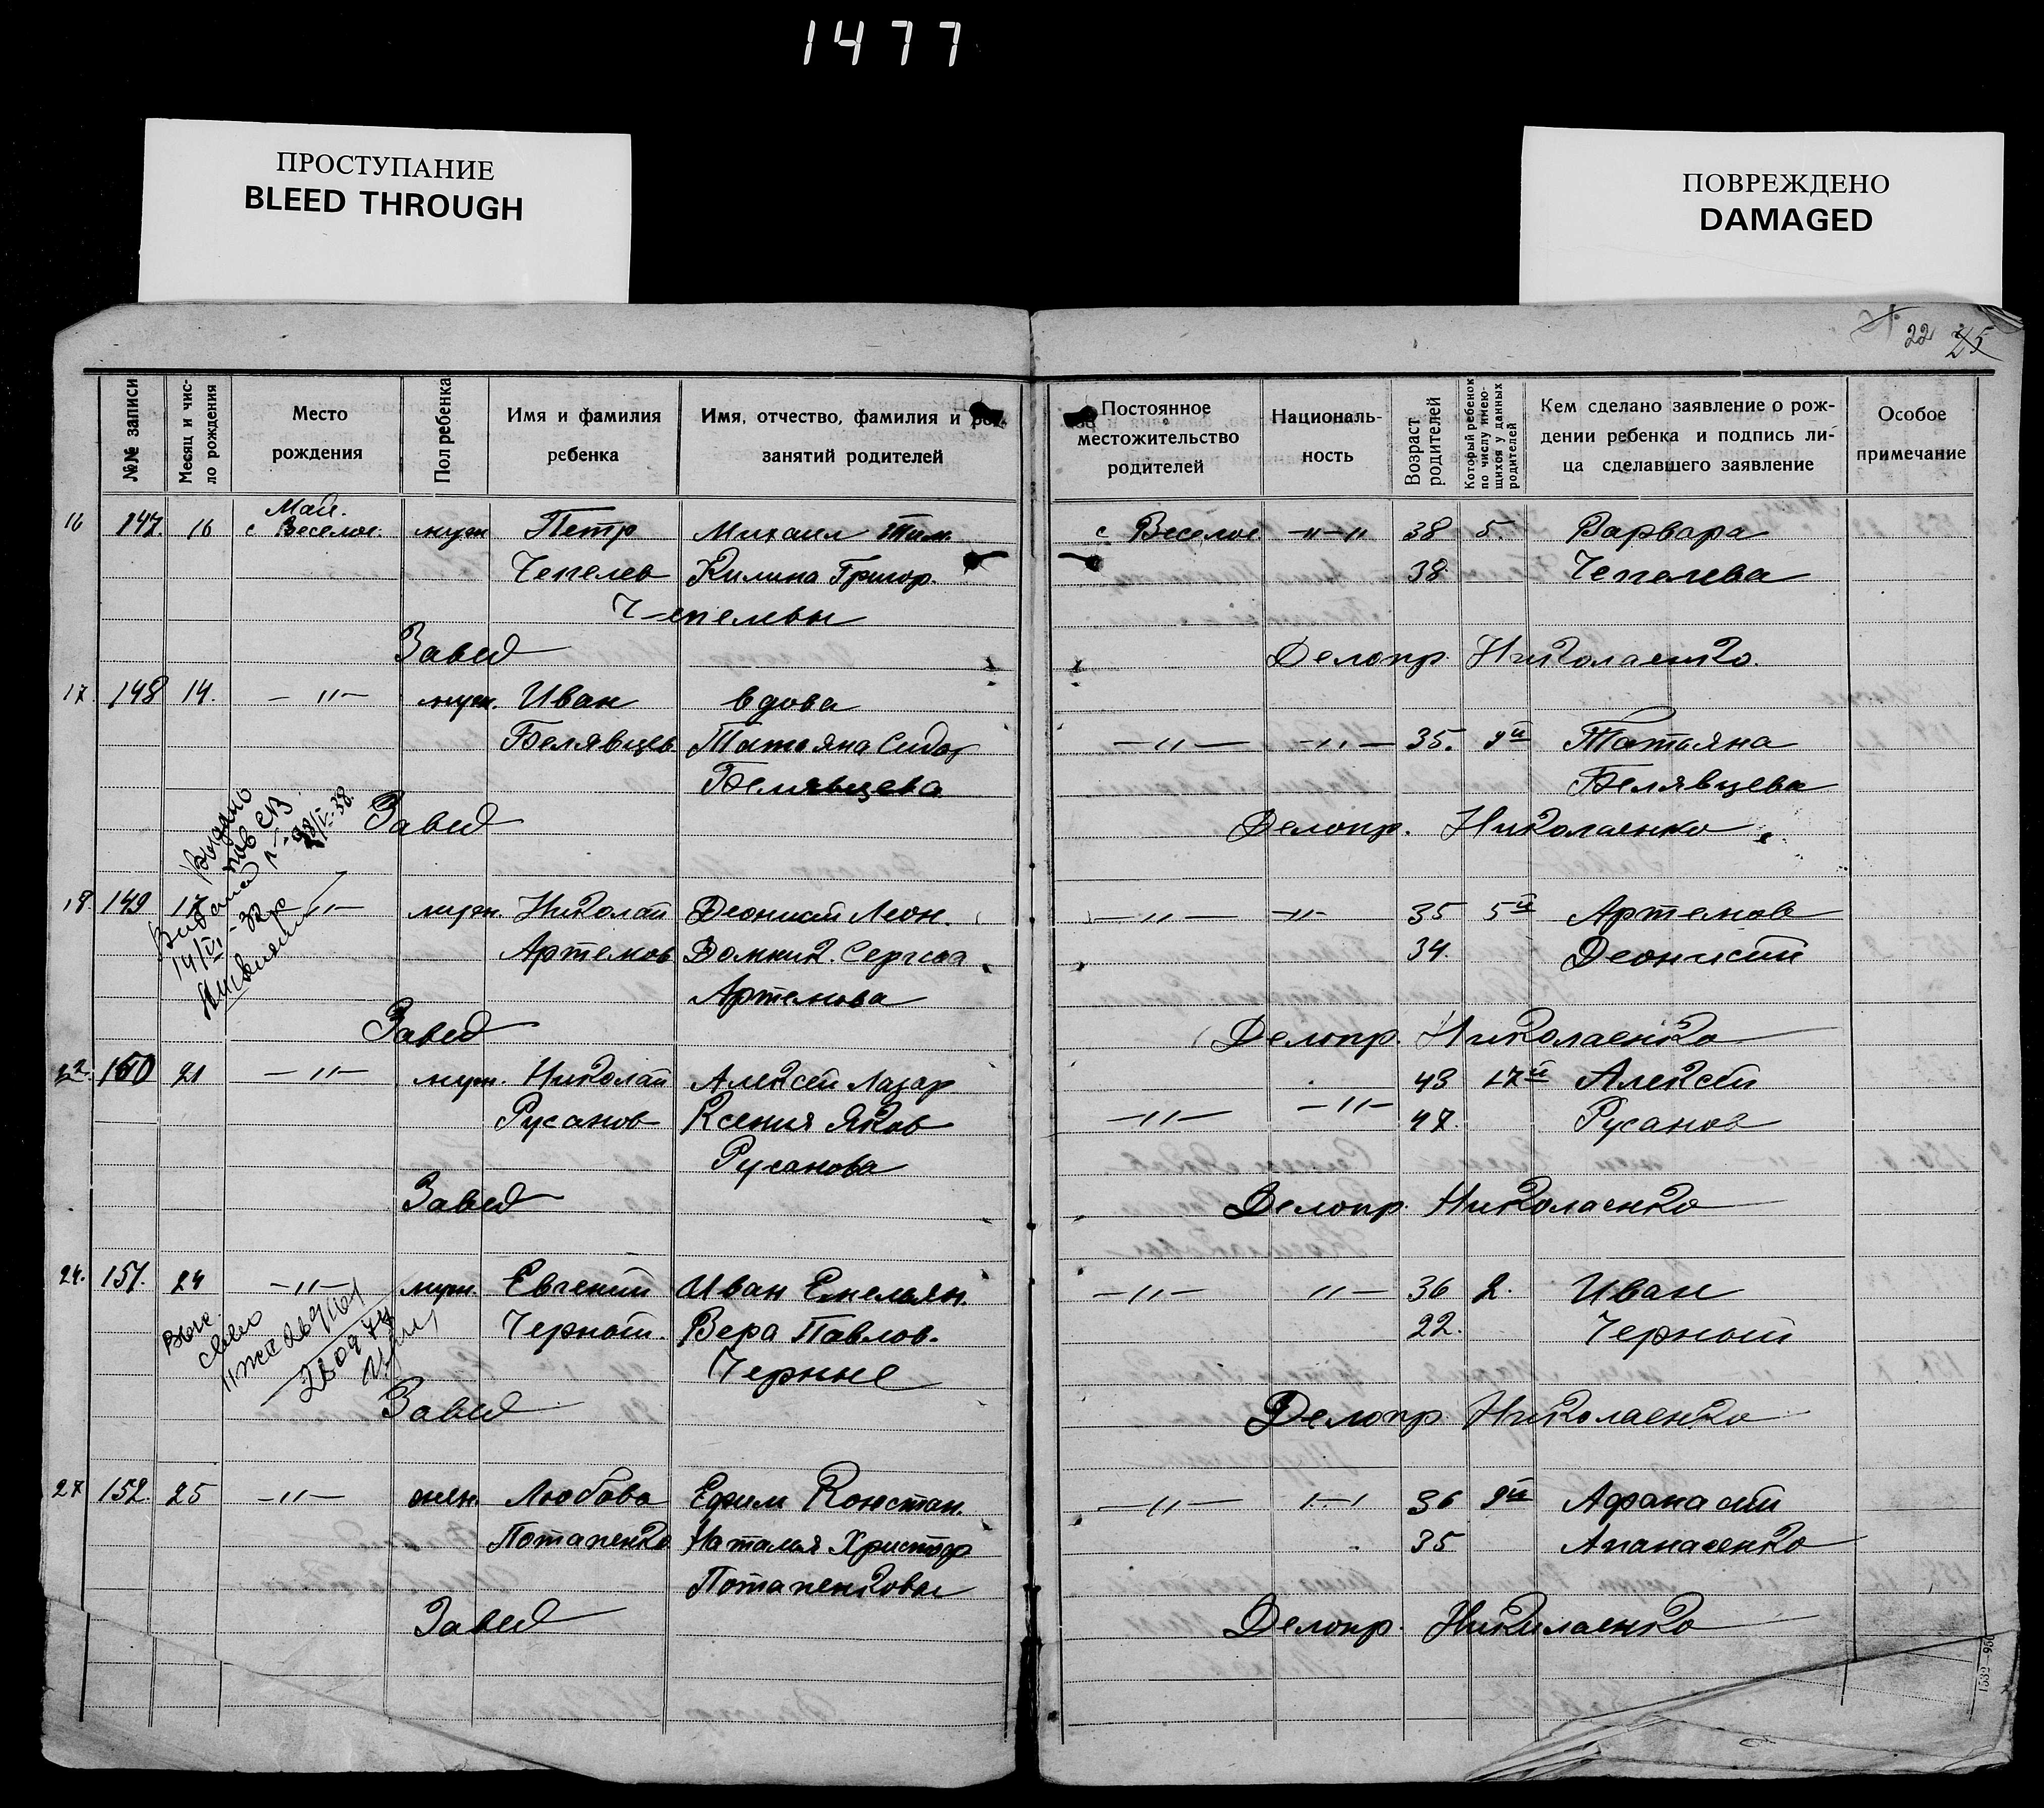 1477
ПРОСТУПАНИЕ
BLEED THROUGH
ПОВРЕЖДЕНО
DAMAGED
22 25
№№ записи
Месяц и число рождения
Место рождения
Пол ребенка
Имя и фамилия ребенка
Имя, отчество, фамилия и род. занятий родителей
Постоянное местожительство родителей
Националь-ность
Возраст родителей
Который ребенок по числу имею-щихся у данных родителей
Кем сделано заявление о рож-дении ребенка и подпись ли-ца сделавшего заявление
Особое примечание
Май.
16 147. 16 с Веселое. муж Петр Михаил Тим. с Веселое -"-" 38 5. Варвара
Чепелев Килина Григор. 38 Чепелева
Чепелевы
Завед Делопр. Николаенко.
17. 148 14. -"- муж. Иван вдова
Белявцев Татьяна Сидор -"- -"- 35. 9й Татьяна
Белявцева Белявцева
Завед Делопр. Николаенко.
Выдано
пов СВ
18. 149 17 -"- муж. Николай Деонисий Леон. -"- -"- 35 5й Артемов
Артемов Домник. Сергееа 34. Деонисий
Артемова
Завед Делопр. Николаенко
22. 150 21 -"- муж. Николай Алексей Лазар 43 17й Алексей
Русанов Ксения Яков -"- -"- 47. Русанов
Русанова
Завед Делопр. Николаенко
24. 151. 24 -"- муж. Евгений Иван Емельян. -"- "- 36 2. Иван
Черный. Вера Павлов. 22. Черный
Черные
Завед Делопр Николаенко
27 152. 25 -"- жен. Любовь Ефим Констан. -"- 36 9й Афанасий
Потапенко Наталья Христоф 35 Апанасенко
Потапенковы
Завед Делопр. Николаенко